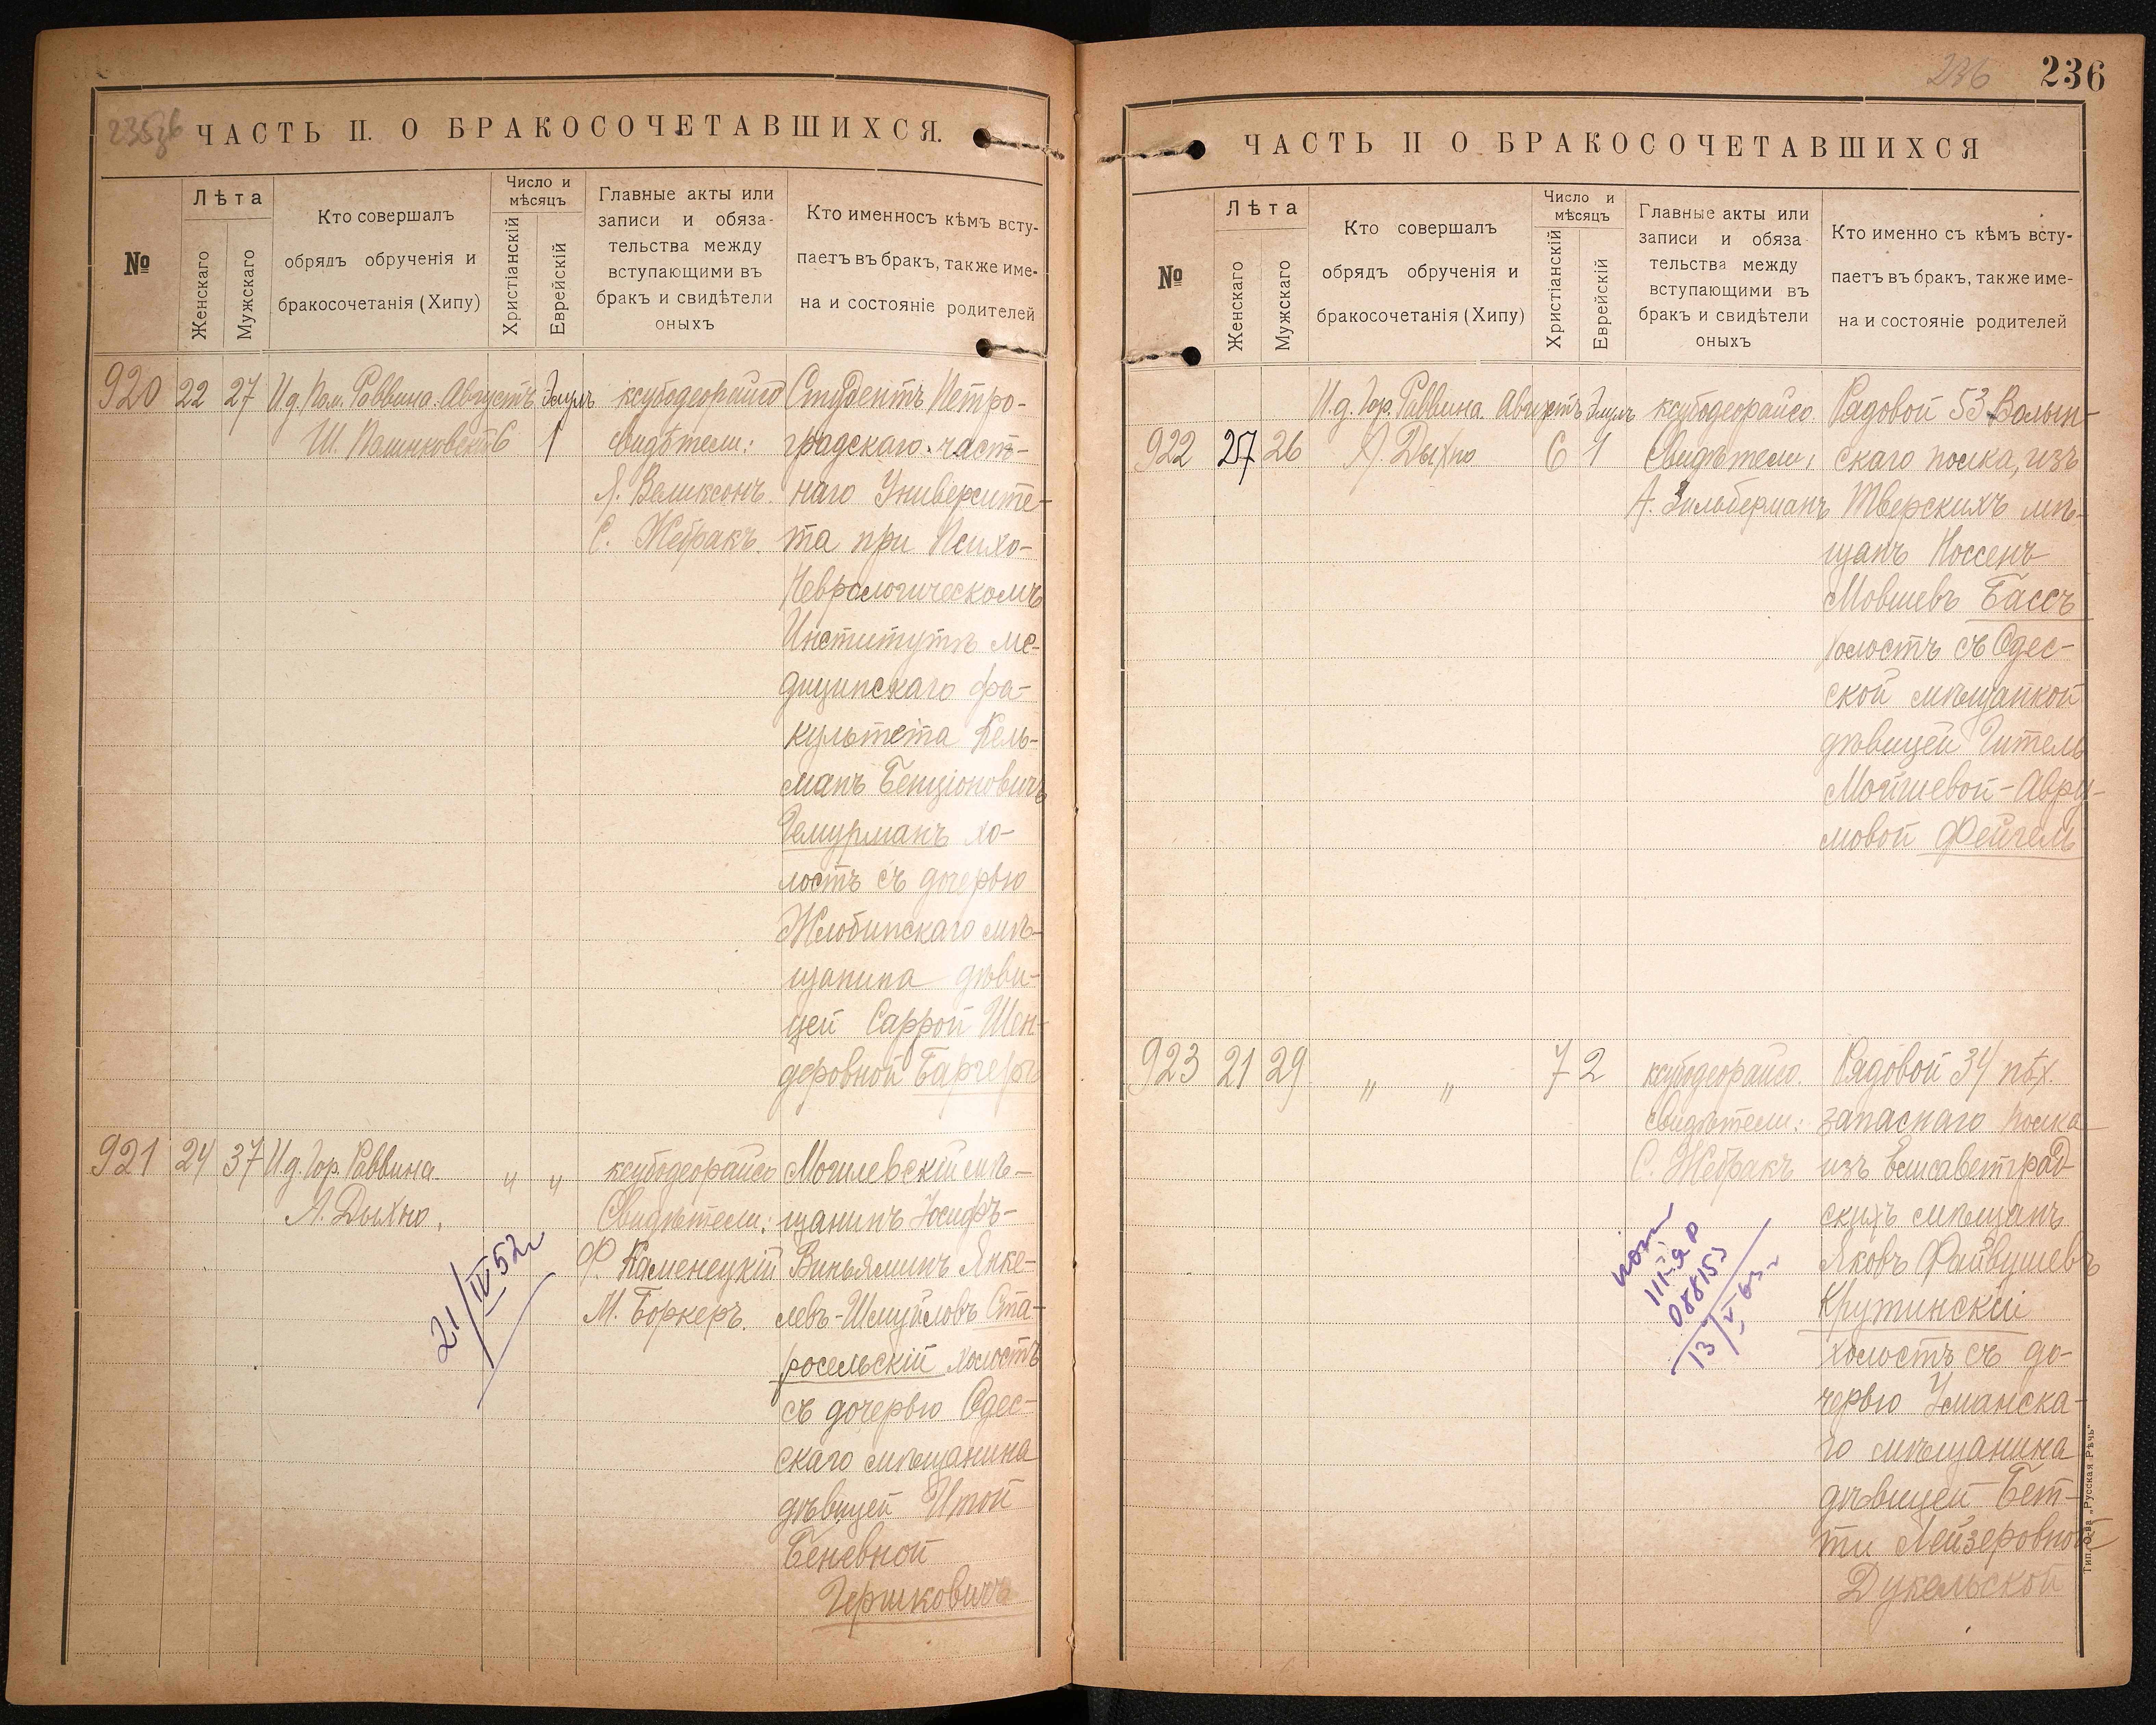 235об
ЧАСТЬ II. О БРАКОСОЧЕТАВШИХСЯ.
№
Лѣта
Женскаго
Мужскаго
Кто совершалъ
обрядъ обрученія и
бракосочетанія (Хипу)
Число и
мѣсяцъ
Христіанскій
Еврейскій
Главные акты или
записи и обяза-
тельства между
вступающими въ
бракъ и свидѣтели
оныхъ
Кто именносъ кѣмъ всту-
паетъ въ бракъ, также име-
на и состояніе родителей
920 22 27
И.д. Пом. Раввина
Августъ 6
Элулъ 1
ксубодеорайсо
свидѣтели:
Я. Великсонъ.
С. Жебракъ.
Студентъ Петро-
градскаго част-
наго Университе-
та при Психо-
Неврологическомъ
Институтѣ ме-
дицинскаго фа-
культета Кель-
манъ Бенціоновичъ
Гемурманъ хо-
лостъ съ дочерью
Жлобинскаго мѣ-
щанина дѣви-
цей Саррой Шен-
деровной
921 24 37
И.д. Гор. Раввина
А. Дыхно.
" "
ксубодеорайсо
Свидѣтели:
Ф. Каменецкій
М. Боркеръ.
Могилевскій мѣ-
щанинъ Іосифъ-
Виньяминъ Янке-
левъ-Шмуйловъ Ста-
росельскій холостъ
съ дочерью Одес-
скаго мѣщанина
дѣвицей Итой
Беневной
Гершковичъ
21/IV 52г
236
236
ЧАСТЬ II О БРАКОСОЧЕТАВШИХСЯ
№
Лѣта
Женскаго
Мужскаго
Кто совершалъ
обрядъ обрученія и
бракосочетанія (Хипу)
Число и
мѣсяцъ
Христіанскій
Еврейскій
Главные акты или
записи и обяза
тельства между
вступающими въ
бракъ и свидѣтели
оныхъ
Кто именно съ кѣмъ всту-
паетъ въ бракъ, также име-
на и состояніе родителей
922 27 26
И.д. Гор. Раввина
А Дыхно
Августъ 6
Элулъ 1
ксубодеорайсо.
Свидѣтели,
А. Зильберманъ
Рядовой 53 Волын-
скаго полка, изъ
Тверскихъ мѣ-
щанъ Носсенъ
Мовшевъ Бассъ
холостъ съ Одес-
ской мѣщанкой
дѣвицей Гитель
Мойшевой-Авру-
мовой Фейгель
923 21 29
" "
7 2
ксубодеорайсо.
свидѣтели:
С. Жебракъ
Рядовой 34 пѣх.
запаснаго полка
изъ Елисаветград
скихъ мѣщанъ
Яковъ Файвушевъ
Крутинскій
холостъ съ до-
черью Уманска-
го мѣщанина
дѣвицей Бет-
ти Лейзеровной
Дукельской
088153
Тип. О-ва „Русская Рѣчь"